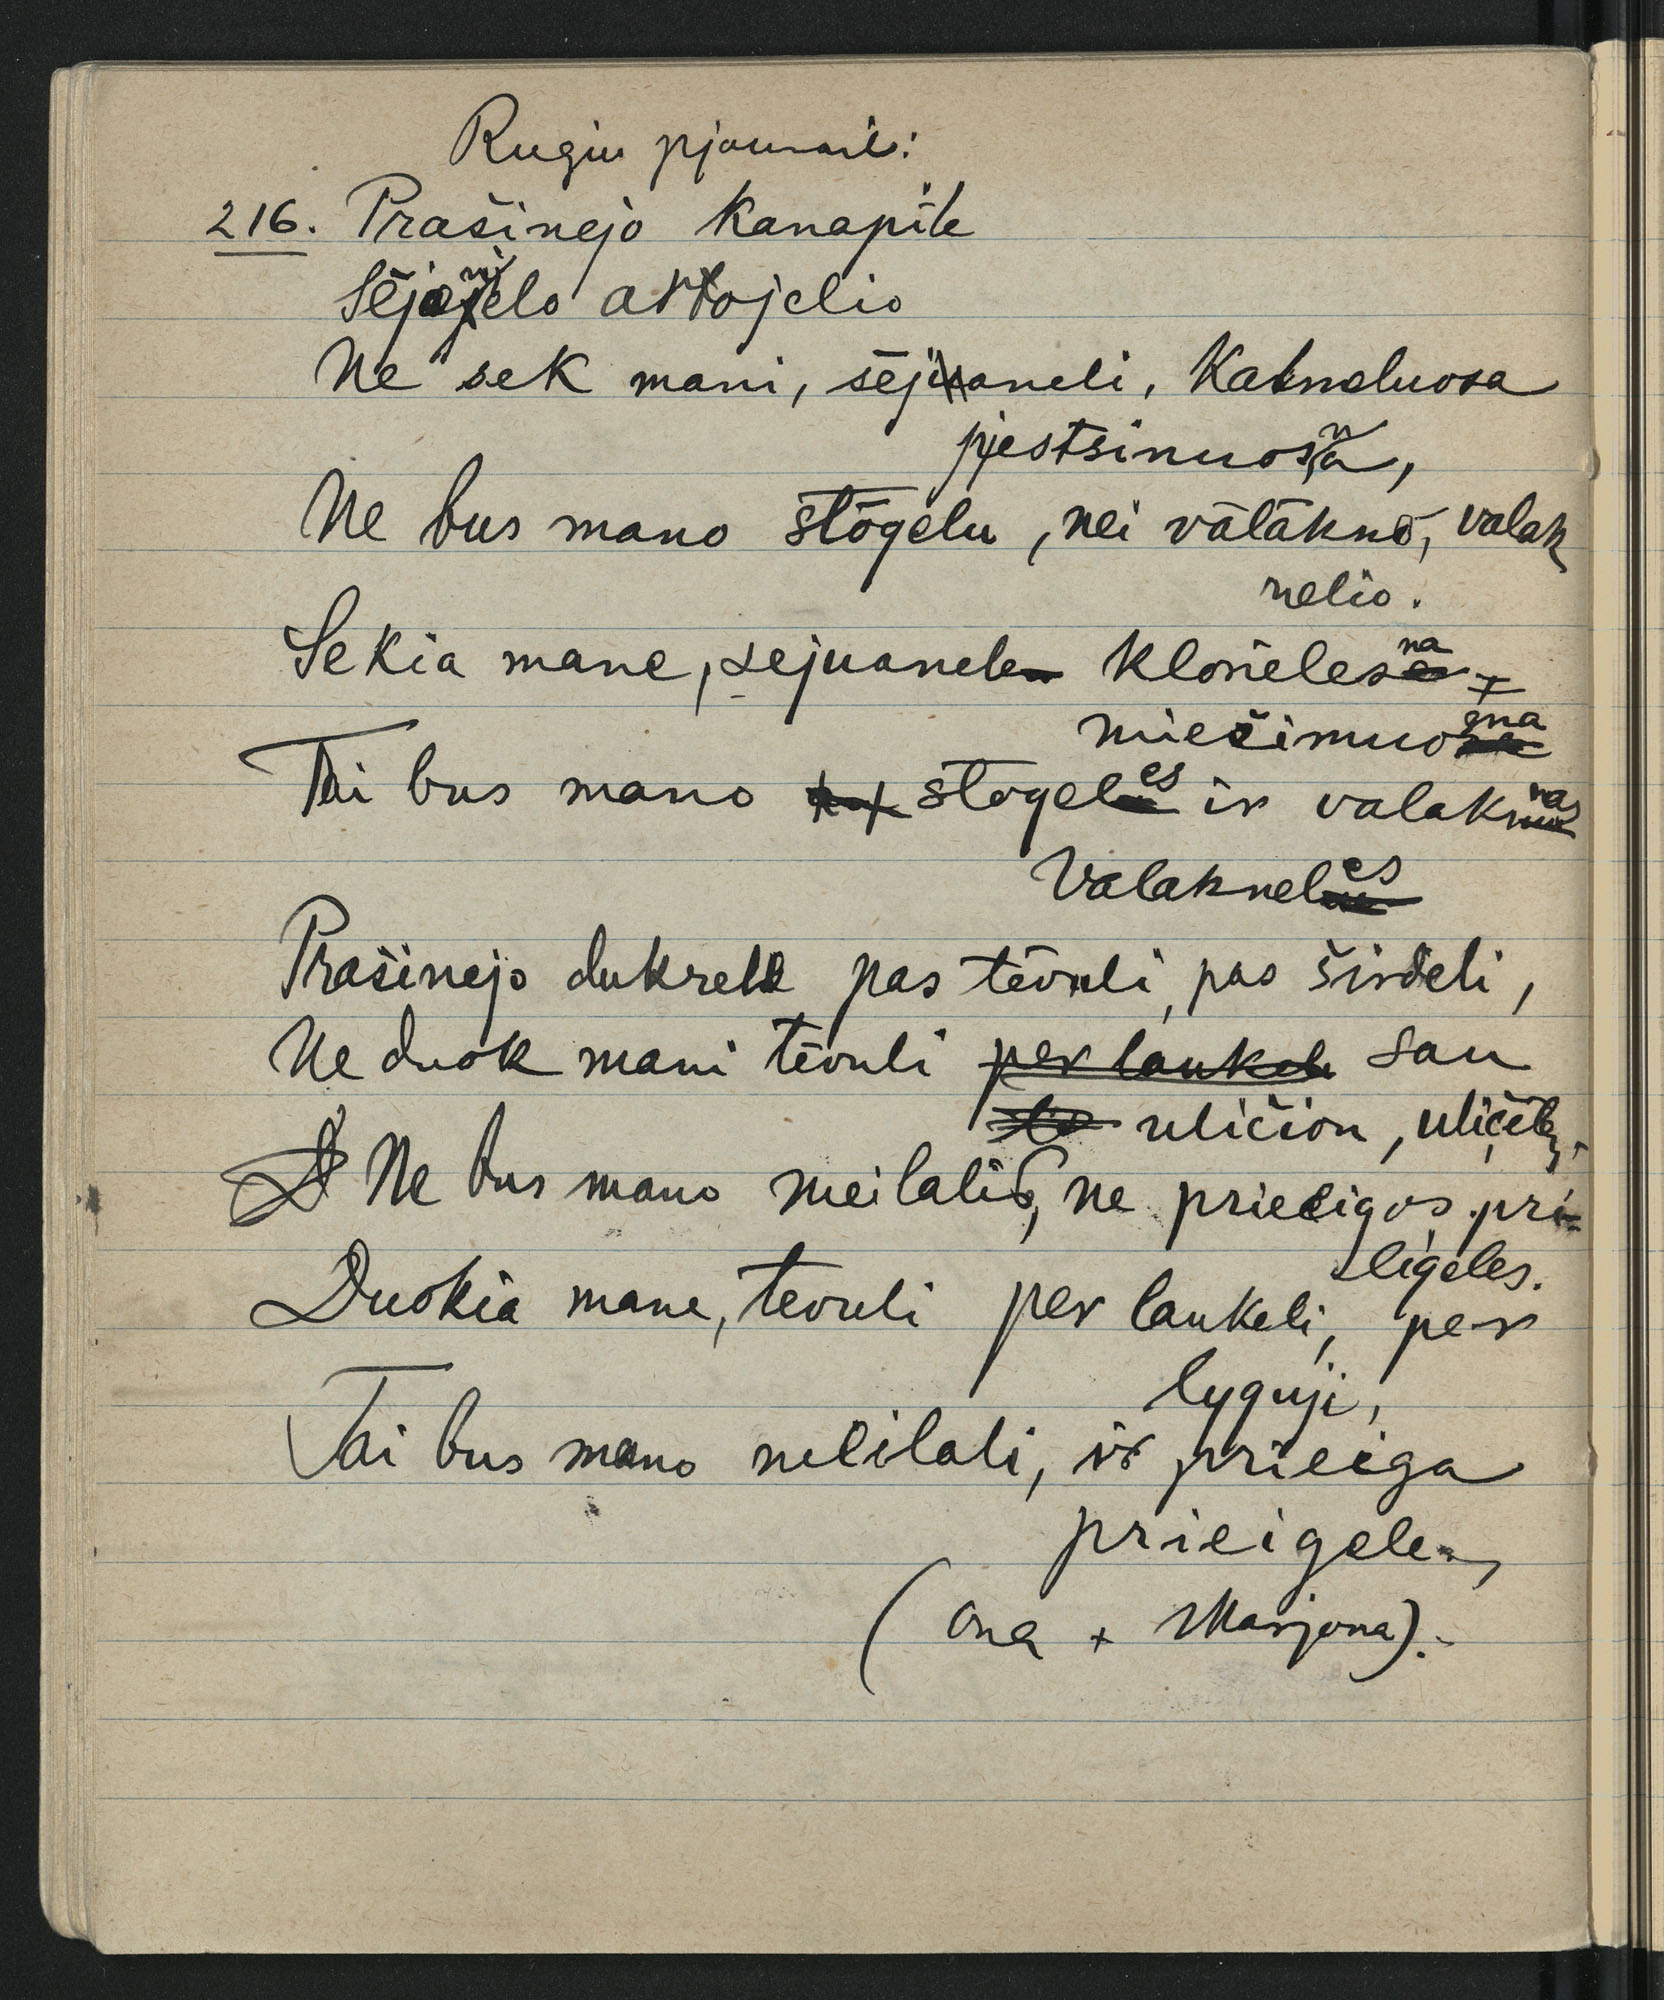 Rugiu pjaunant:
216. Prašinejo kanapile
artojelio
Ne sek mani, sējuaneli, Kalneluosa
pjestsinuosna,
Ne bus mano stōgelu, nei vālāknō, valak
nelio.
Sekia mane, sejuanele klonelesna
miešimuosna
Tai bus mano stogeles ir valaknas
Valakneles
Prašinejo dukrele pas tēvuli, pas širdeli,
Ne duok mani tēvuli per laukeli san
uličion, uličēlę.
Ne bus mano meilalio, ne prieeigos pri-
eigeles.
Duokia mane, tevuli per laukeli, per
lyguji,
Tai bus mano meilali, ir prieiga
prieigele,
(Ona + Marjona).-